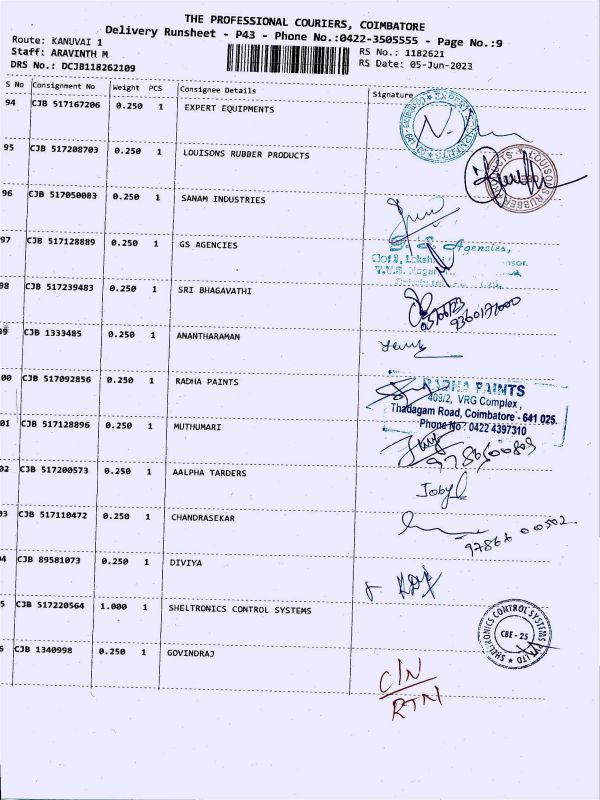 THE PROFESSIONAL COURIERS, COIMBATORE
Delivery Runsheet - P43 - Phone No.:0422-3505555 - Page No.:9
Route: KANUVAI 1
Staff: ARAVINTH M
RS No.: 1182621
DRS No.: DCJB118262109
RS Date: 05-Jun-2023
S No Consignment No Weight PCS Consignee Details Signature
94 CJB 517167206 0.250 1 EXPERT EQUIPMENTS
95 CJB 517208703 0.250 1 LOUISONS RUBBER PRODUCTS
LOUISONS RUBBER PRODUCTS
96 CJB 517050083 0.250 1 SANAM INDUSTRIES
97 CJB 517128889 0.250 1 GS AGENCIES
Agencies,
98 CJB 517239483 0.250 1 SRI BHAGAVATHI
99 CJB 1333485 0.250 1 ANANTHARAMAN
00 CJB 517092856 0.250 1 RADHA PAINTS
RADHA PAINTS
409/2, VRG Complex,
Thadagam Road, Coimbatore - 641 025.
Phone No : 0422 4397310
01 CJB 517128896 0.250 1 MUTHUMARI
02 CJB 517200573 0.250 1 AALPHA TARDERS
Joby
03 CJB 517110472 0.250 1 CHANDRASEKAR
04 CJB 89581073 0.250 1 DIVIYA
5 CJB 517220564 1.000 1 SHELTRONICS CONTROL SYSTEMS
SHELTRONICS CONTROL SYSTEMS
CBE - 25
6 CJB 1340998 0.250 1 GOVINDRAJ
C/N
RTN